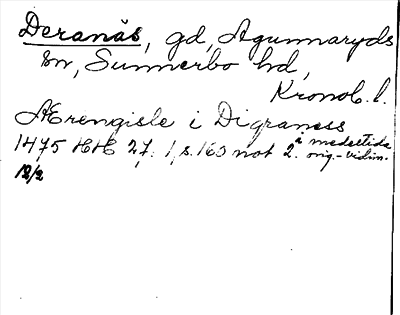 Deranäs, gd, Agunnaryds
sn, Sunnerbo hd,
Kronob. l.
Ærengisle i Digraness
1475 HH 27: 1, s. 160 not 2. i medeltida orig.-vidim.
12/2